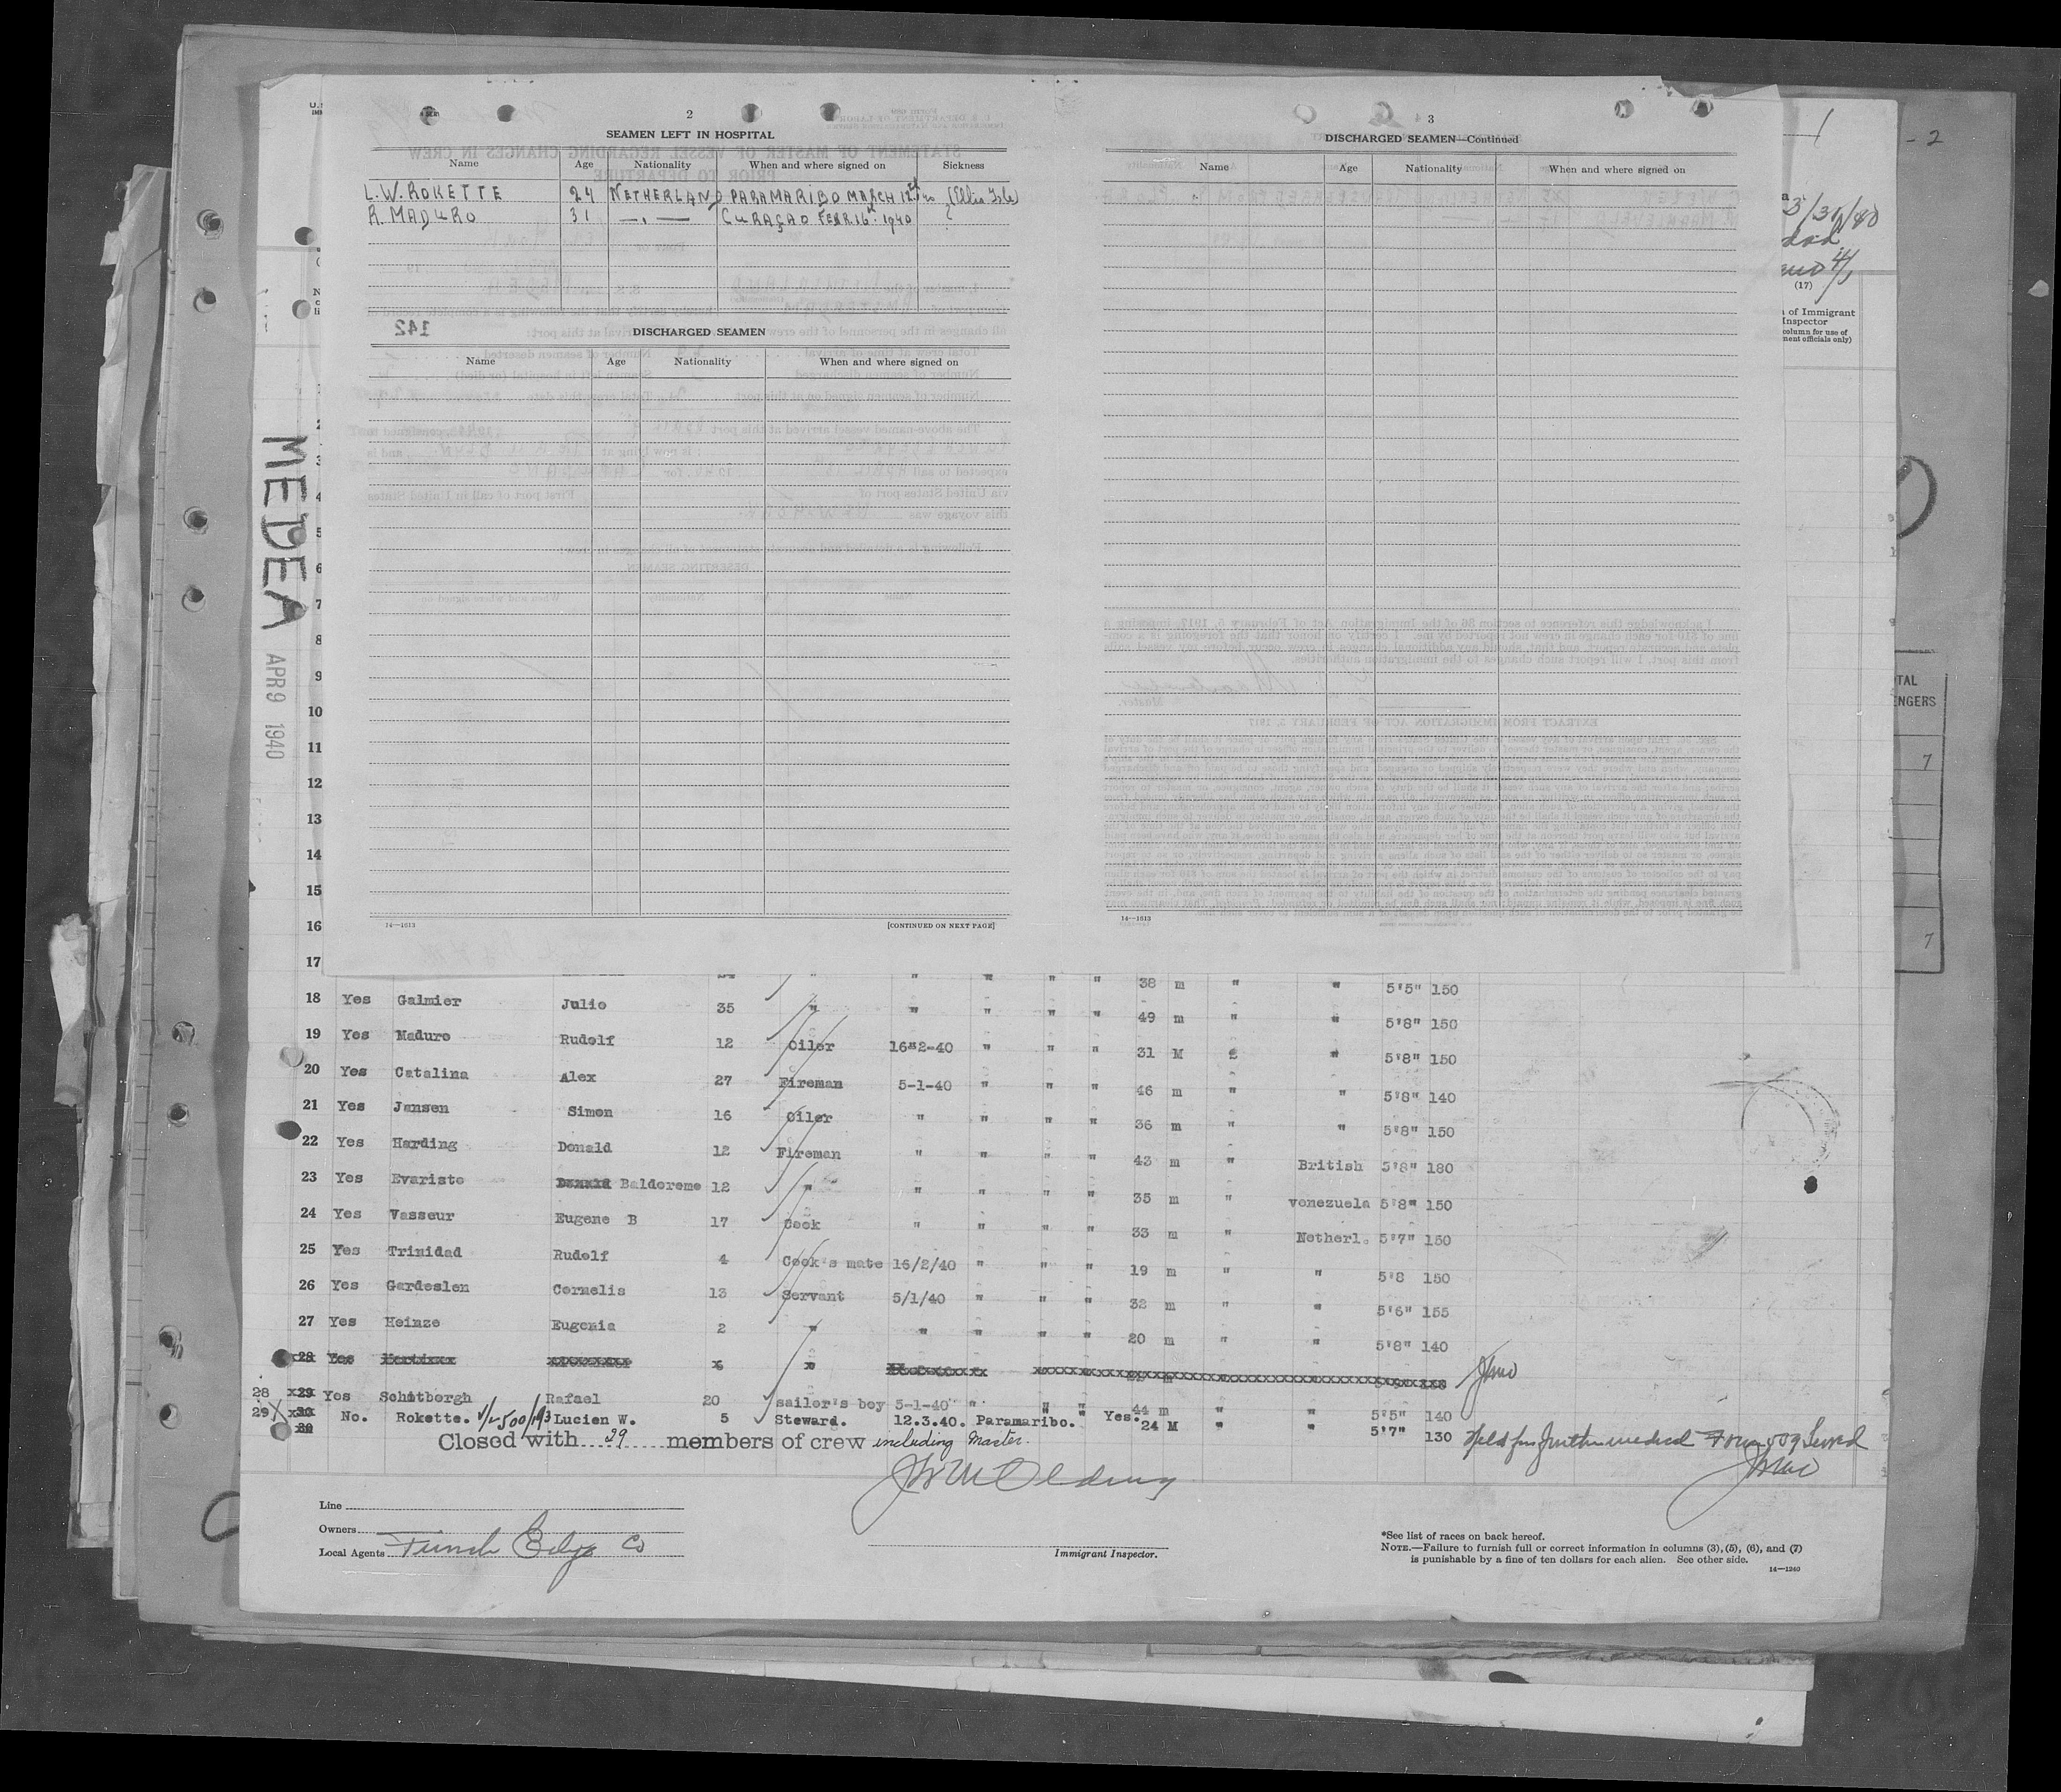 2
SEAMEN LEFT IN HOSPITAL
Name Age Nationality When and where signed on Sickness
L.W. ROKETTE 24 NETHERLAND PARAMARIBO MARCH 12 (Ellis Isle)
R. MADURO 31 —„— CURAÇAO FEBR. 16 1940 ?
DISCHARGED SEAMEN
Name Age Nationality When and where signed on
14—1613 [CONTINUED ON NEXT PAGE]
3
DISCHARGED SEAMEN—Continued
Name Age Nationality When and where signed on
14—1613
- 2
3/30/40
(17)
of Immigrant
Inspector
column for use of
ment officials only)
MEDEA APR 9 1940
TAL
ENGERS
7
7
1
2
3
4
5
6
7
8
9
10
11
12
13
14
15
16
17 " " " " " 38 m " " 5'5" 150
18 Yes Galmier Julio 35 " " " " " 49 m " " 5'8" 150
19 Yes Maduro Rudolf 12 Oiler 16-2-40 " " " 31 M " " 5'8" 150
20 Yes Catalina Alex 27 Fireman 5-1-40 " " " 46 m " " 5'8" 140
21 Yes Jansen Simon 16 Oiler " " " " 36 m " " 5'8" 150
22 Yes Harding Donald 12 Fireman " " " " 43 m " British 5'8" 180
23 Yes Evaristo Baldoreme 12 " " " " " 35 m " Venezuela 5'8" 150
24 Yes Vasseur Eugene B 17 Cook " " " " 33 m " Netherl. 5'7" 150
25 Yes Trinidad Rudolf 4 Cook's mate 16/2/40 " " " 19 m " " 5'8 150
26 Yes Gardeslen Cornelis 13 Servant 5/1/40 " " " 32 m " " 5'6" 155
27 Yes Heinze Eugenia 2 " " " " " 20 m " " 5'8" 140
28 Yes
28 29 Yes Schotborgh Rafael 20 sailor's boy 5-1-40 " " " 44 m " " 5'5" 140
29 30 No. Rokette. Lucien W. 5 Steward. 12.3.40. Paramaribo. " Yes. 24 M " " 5'7" 130 Held for further medical Form 509 Served
30
Closed with 29 members of crew including Master.
Line
Owners
Local Agents Funch Edye Co
Immigrant Inspector.
*See list of races on back hereof.
NOTE.—Failure to furnish full or correct information in columns (3), (5), (6), and (7)
is punishable by a fine of ten dollars for each alien. See other side.
14—1240